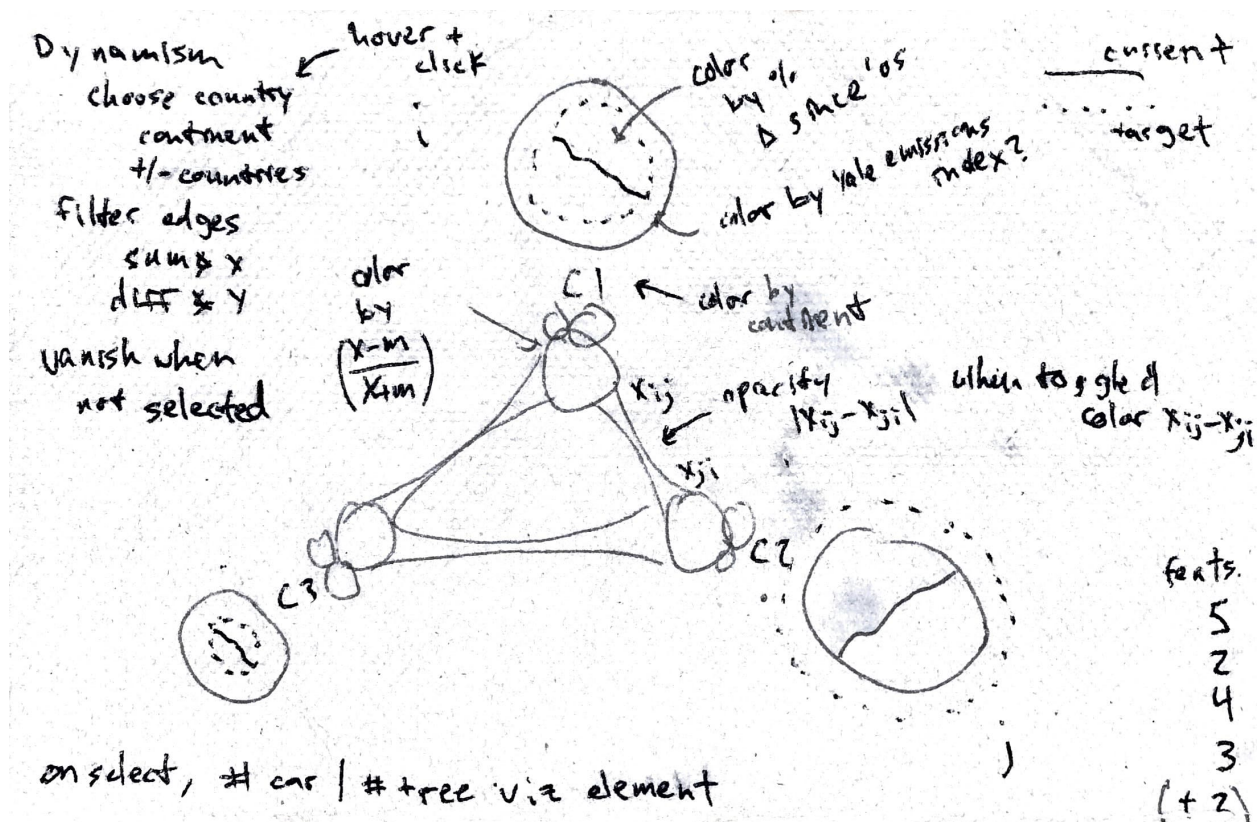 Dynamism
hover +
click
choose country
continent
+/- countries
filter edges
sum & x
diff & y
vanish when
not selected
color
by
(x-m / x+m)
color
by %
Δ since '05
color by Yale emissions
index?
current
target
C1
color by
continent
xij
opacity
|xij-xji|
xji
when toggled
color xij-xji
C2
C3
feats.
5
2
4
3
(+2)
on select, # car | # tree viz element